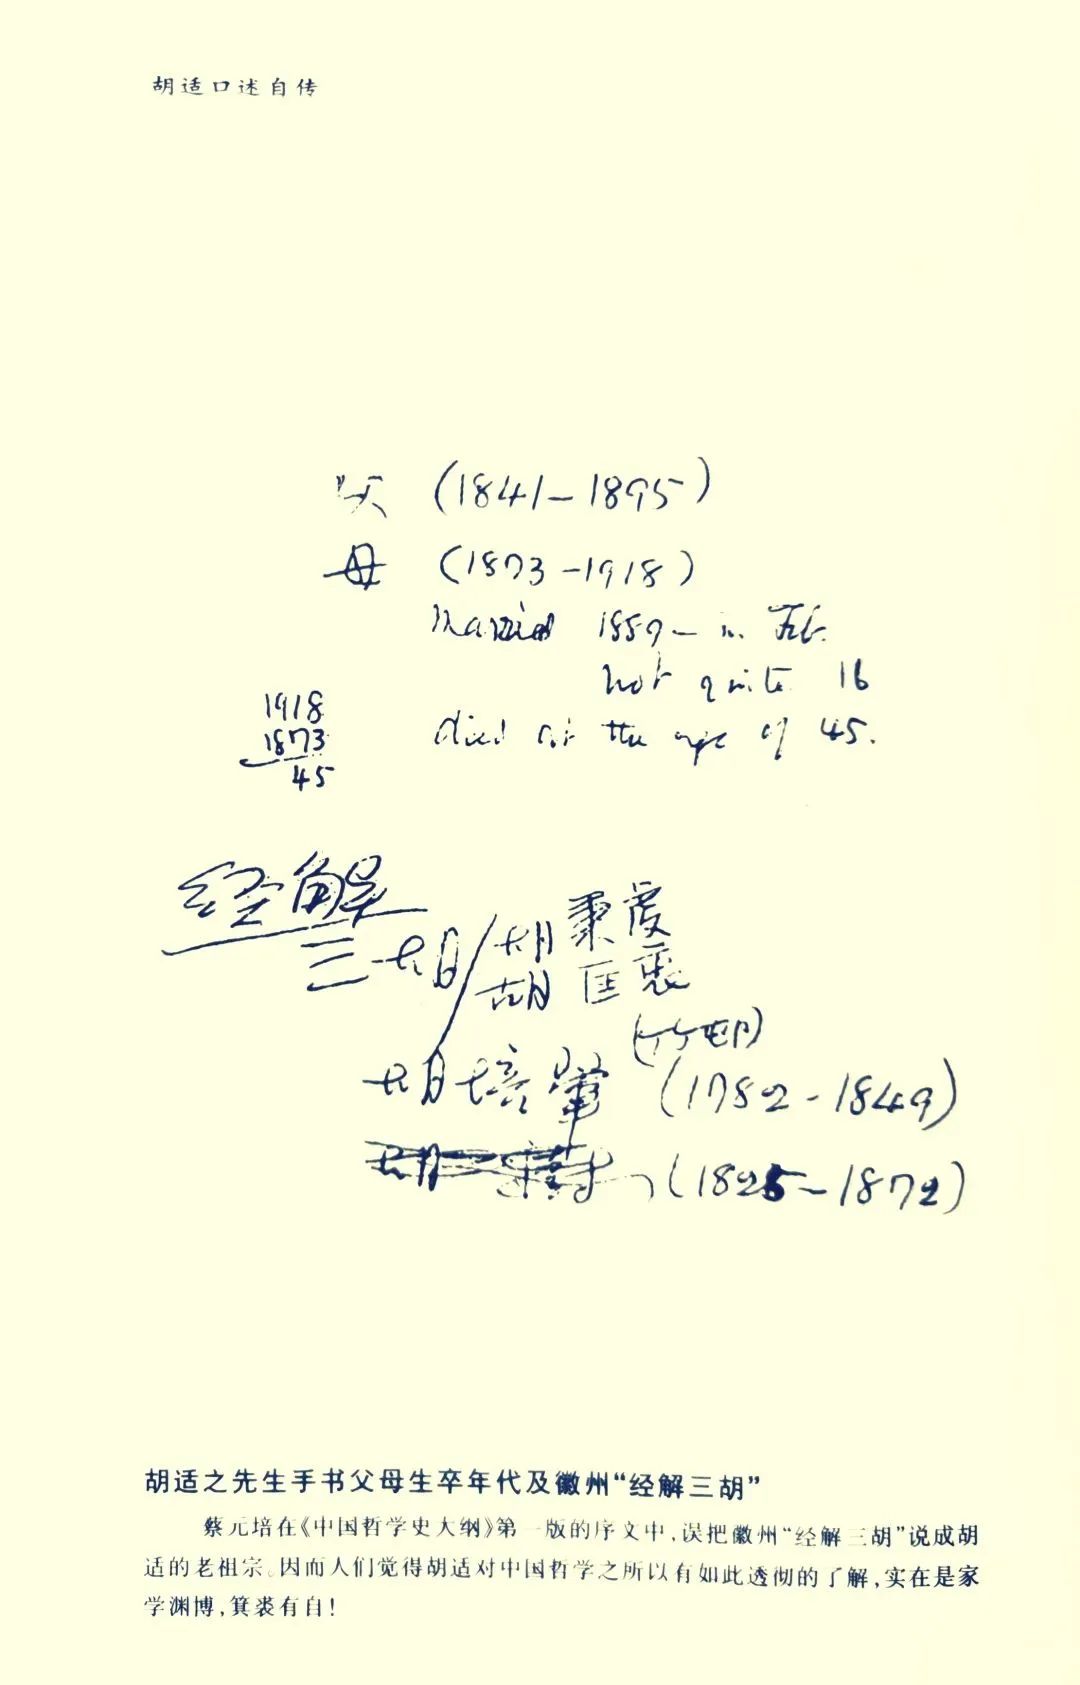 胡适口述自传
父 (1841-1895)
母 (1873-1918)
married 1889 - in Feb.
not quite 16
died at the age of 45.
1918
1873
45
经解
三胡 胡秉虔
胡匡衷
(竹邨)
胡培翚 (1782-1849)
(1825-1872)
胡适之先生手书父母生卒年代及徽州“经解三胡”
蔡元培在《中国哲学史大纲》第一版的序文中,误把徽州“经解三胡”说成胡
适的老祖宗。因而人们觉得胡适对中国哲学之所以有如此透彻的了解,实在是家
学渊博,箕裘有自!